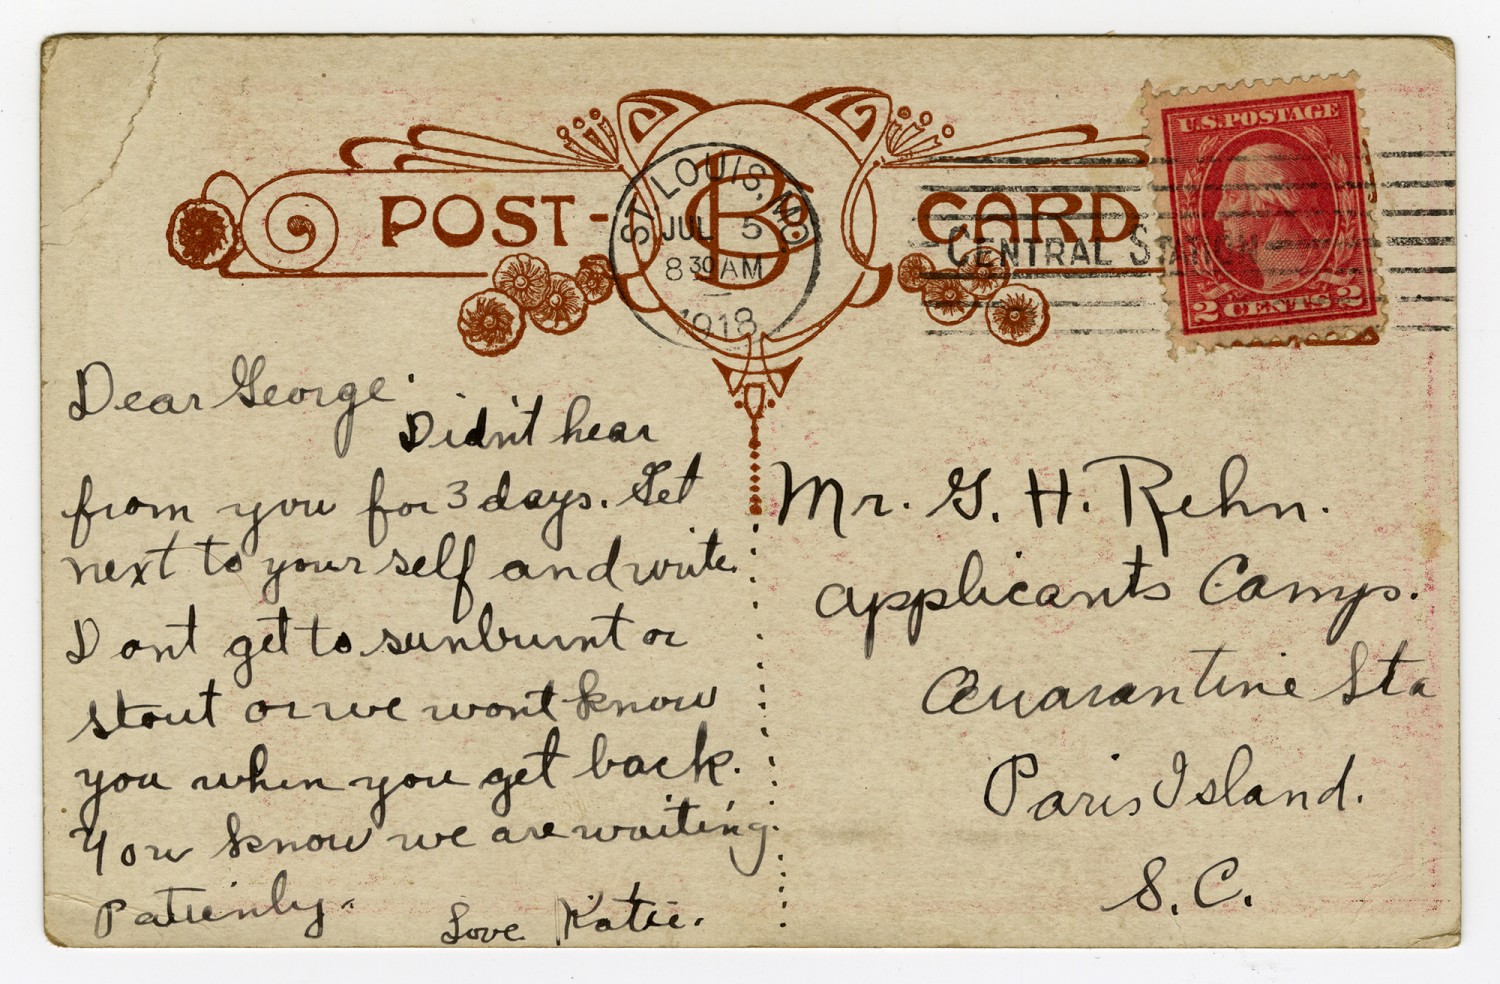 POST-CARD
B
ST. LOUIS, MO.
JUL 5
8 30 AM
1918
CENTRAL STATION
U.S. POSTAGE
2 CENTS 2
Dear George.
Didn't hear
from you for 3 days. Set
next to your self and write.
Dont get to sunburnt or
stout or we wont know
you when you get back.
You know we are waiting.
Patienly.
Love Katie.
Mr. G. H. Rehn.
applicants Camp.
Quarantine Sta
Paris Island.
S. C.